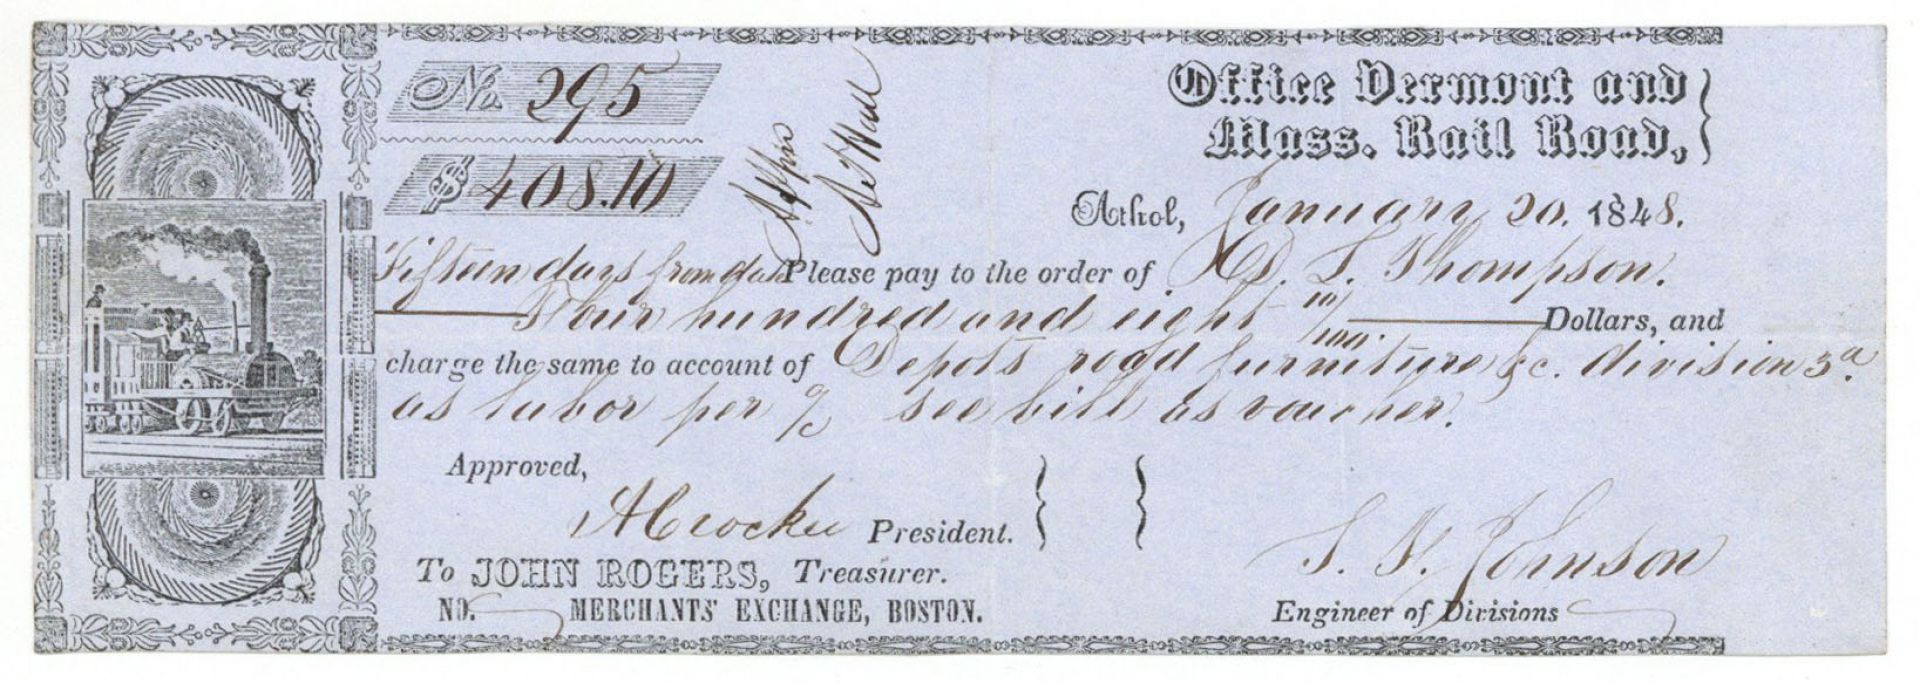 No. 295
$ 408.10
Office Vermont and
Mass. Rail Road,
Athol, January 20. 1848.
Fifteen days from date Please pay to the order of D. S. Thompson.
Four hundred and eight 10/100. Dollars, and
charge the same to account of Depots road furniture &c. division 3d.
as labor per % see bill as voucher.
Approved,
A Crocker President.
To JOHN ROGERS, Treasurer.
NO. MERCHANTS' EXCHANGE, BOSTON.
S. F. Johnson
Engineer of Divisions